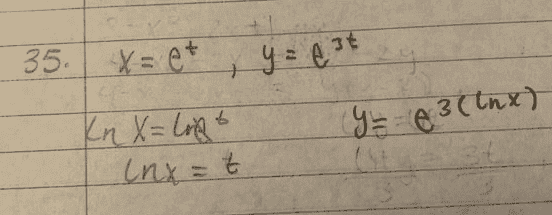 35. x = e^t , y = e^3t
ln x = ln e^t y = e^3(ln x)
ln x = t